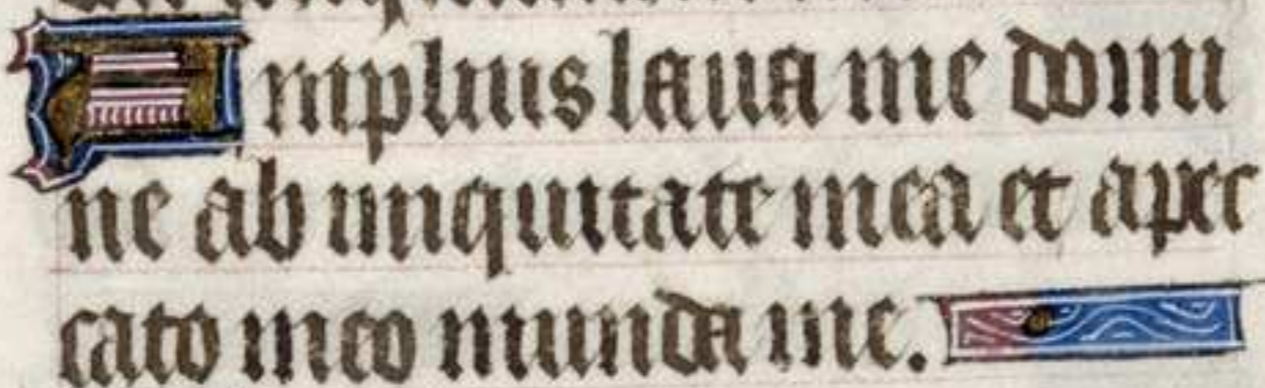 Amplius laua me domi
ne ab iniquitate mea et a pec
cato meo munda me.